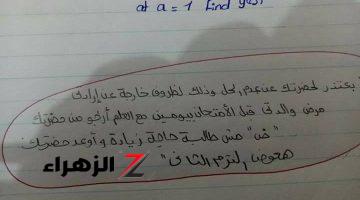 at a = 1 find y(s)
بعتذر لحضرتك عن عدم الحل وذلك لظروف خارجة عن إرادتى
مرض والدتى قبل الامتحان بيومين مع العلم أرجو من حضرتك
"   " مش طالبة حاجة زيادة وأوعد حضرتك
هعوض الترم الثانى"
الزهراء